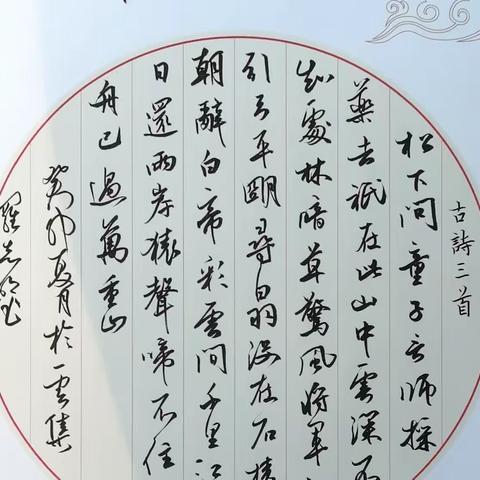 古詩三首
松下問童子言師採
藥去祇在此山中雲深不
知處林暗草驚風將軍
引弓平明尋白羽沒在石棱
朝辭白帝彩雲間千里江
日還兩岸猿聲啼不住
舟已過萬重山
癸卯夏月於雲集
羅志